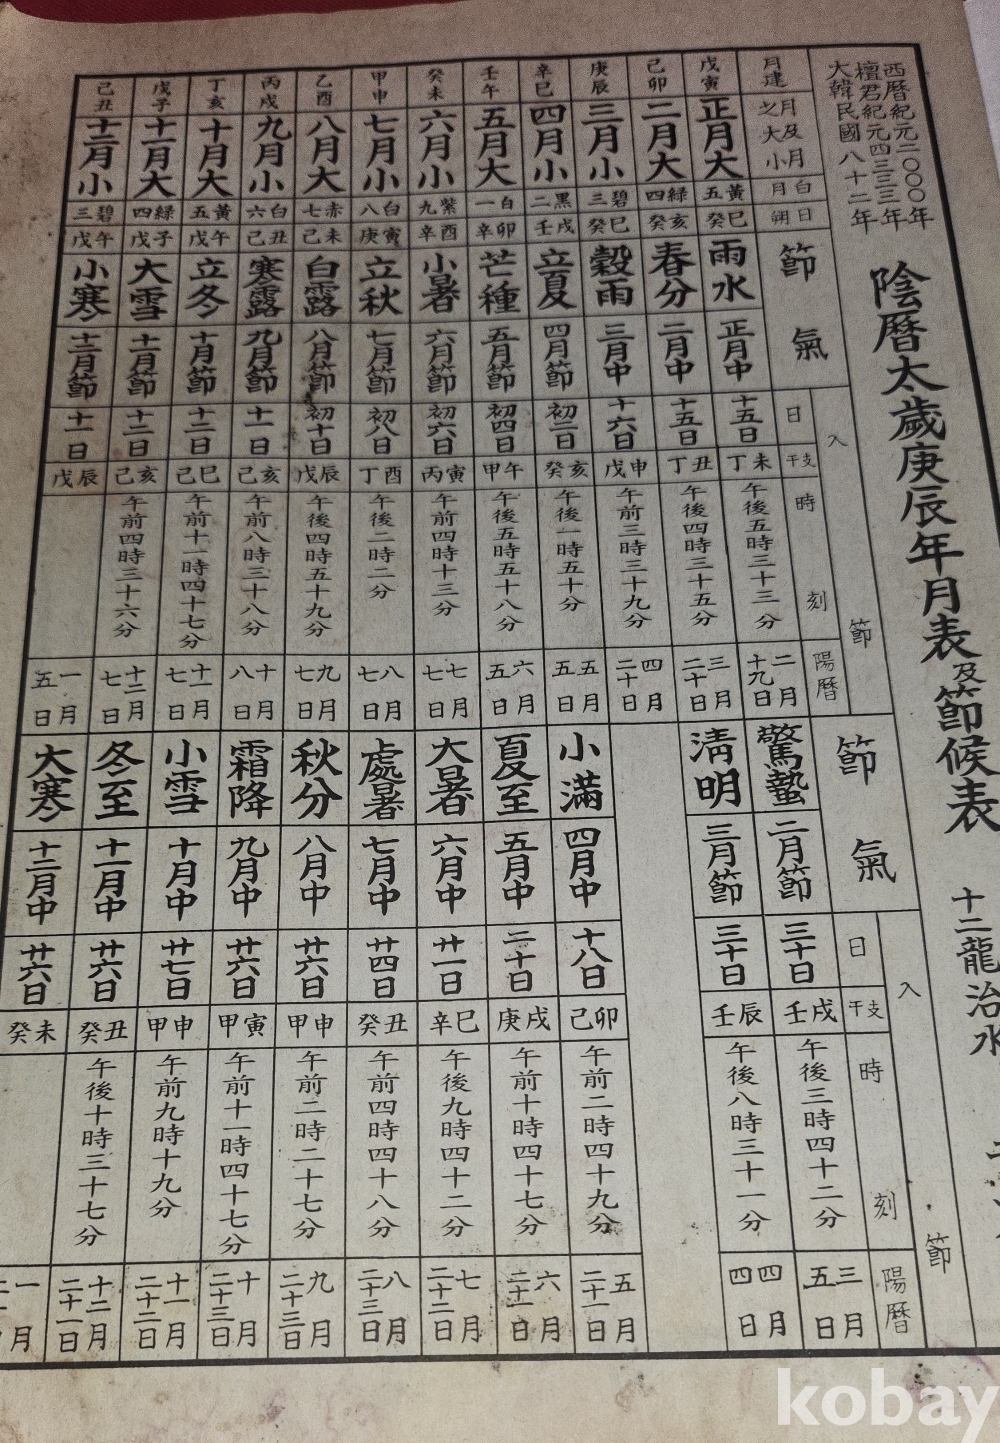 西曆紀元二〇〇〇年
檀君紀元四三三三年
大韓民國八十二年
陰曆太歲庚辰年月表及節候表 十二龍治水
月建 月及月之大小 月白 日朔 節氣 入節 日 干支 時刻 陽曆 節氣 入節 日 干支 時刻 陽曆
戊寅 正月大 五黃 癸巳 雨水 正月中 十五日 丁未 午後五時三十三分 二月十九日 驚蟄 二月節 三十日 壬戌 午後三時四十二分 三月五日
己卯 二月大 四綠 癸亥 春分 二月中 十五日 丁丑 午後四時三十五分 三月二十日 淸明 三月節 三十日 壬辰 午後八時三十一分 四月四日
庚辰 三月小 三碧 癸巳 穀雨 三月中 十六日 戊申 午前三時三十九分 四月二十日
辛巳 四月小 二黑 壬戌 立夏 四月節 初二日 癸亥 午後一時五十分 五月五日 小滿 四月中 十八日 己卯 午前二時四十九分 五月二十一日
壬午 五月大 一白 辛卯 芒種 五月節 初四日 甲午 午後五時五十八分 六月五日 夏至 五月中 二十日 庚戌 午前十時四十七分 六月二十一日
癸未 六月小 九紫 辛酉 小暑 六月節 初六日 丙寅 午前四時十三分 七月七日 大暑 六月中 廿一日 辛巳 午後九時四十二分 七月二十二日
甲申 七月小 八白 庚寅 立秋 七月節 初八日 丁酉 午後二時二分 八月七日 處暑 七月中 廿四日 癸丑 午前四時四十八分 八月二十三日
乙酉 八月大 七赤 己未 白露 八月節 初十日 戊辰 午後四時五十九分 九月七日 秋分 八月中 廿六日 甲申 午前二時二十七分 九月二十三日
丙戌 九月小 六白 己丑 寒露 九月節 十一日 己亥 午前八時三十八分 十月八日 霜降 九月中 廿六日 甲寅 午前十一時四十七分 十月二十三日
丁亥 十月大 五黃 戊午 立冬 十月節 十二日 己巳 午前十一時四十七分 十一月七日 小雪 十月中 廿七日 甲申 午前九時十九分 十一月二十二日
戊子 十一月大 四綠 戊子 大雪 十一月節 十二日 己亥 午前四時三十六分 十二月七日 冬至 十一月中 廿六日 癸丑 午後十時三十七分 十二月二十一日
己丑 十二月小 三碧 戊午 小寒 十二月節 十一日 戊辰 一月五日 大寒 十二月中 廿六日 癸未 一月
kobay